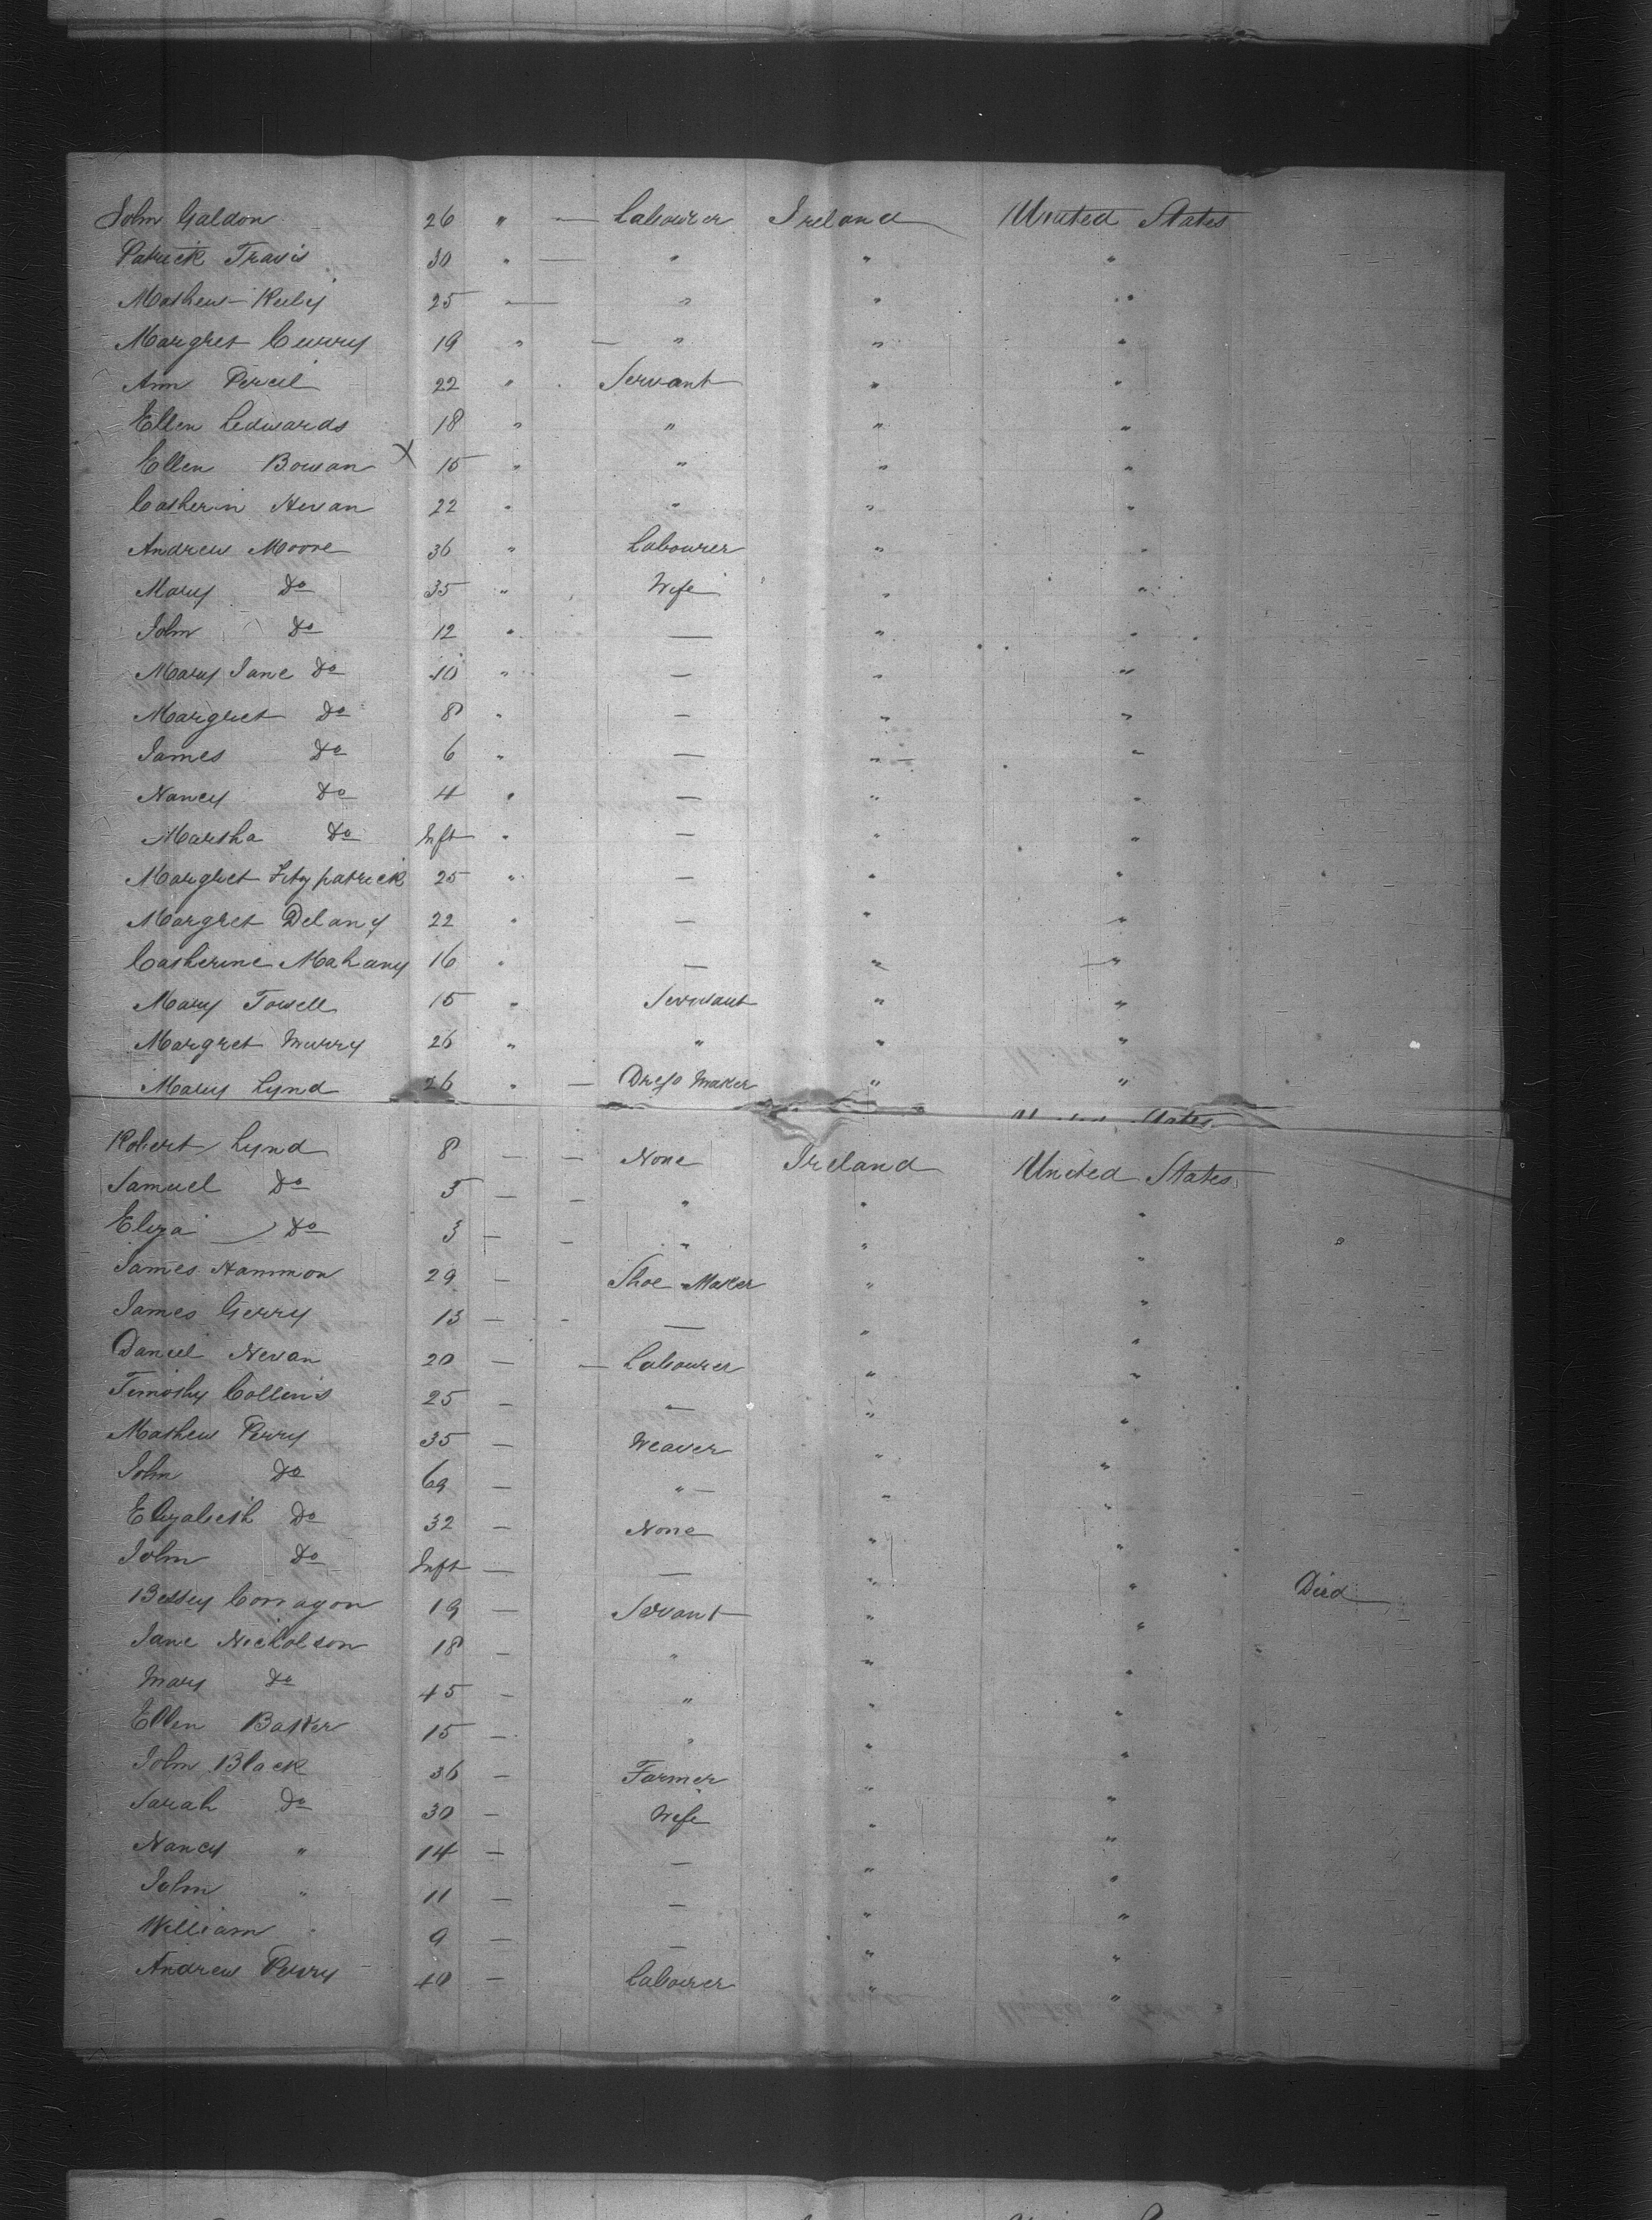 John Galdon 26 " — Labourer Ireland United States
Patrick Travis 30 " — " " "
Mathew Ruby 25 " — " " "
Margret Curry 19 " — " " "
Ann Percil 22 " Servant " "
Ellen Ledwards 18 " " " "
Ellen Bowan X 15 " " " "
Catherin Hevan 22 " " " "
Andrew Moore 36 " Labourer " "
Mary Do 35 " Wife " "
John Do 12 " — " "
Mary Jane Do 10 " — " "
Margret Do 8 " — " "
James Do 6 " — " "
Nancy Do 4 " — " "
Martha Do Inft " — " "
Margret Fitzpatrick 25 " — " "
Margret Delany 22 " — " "
Catherine Mahany 16 " — " "
Mary Towell 15 " Servant " "
Margret Murry 26 " " " "
Mary Lynd 26 " — Dress Maker " "
United States
Robert Lynd 8 — — None Ireland United States
Samuel Do 5 — — " " "
Eliza Do 3 — — " " "
James Hammon 29 — Shoe Maker " "
James Gerry 13 — - — " "
Daniel Nevan 20 — — Labourer " "
Timothy Collens 25 — " " "
Mathew Perry 35 — Weaver " "
John Do 69 — " — " "
Elizabeth Do 32 — None " "
John Do Inft — — " " Died
Bessey Corragon 19 — Servant " "
Jane Nicholson 18 — " " "
Mary Do 45 — " " "
Ellen Baxter 15 — " " "
John Black 36 — Farmer " "
Sarah Do 30 — Wife " "
Nancy " 14 — — " "
John " 11 — — " "
William " 9 — — " "
Andrew Perry 40 — Labourer " "